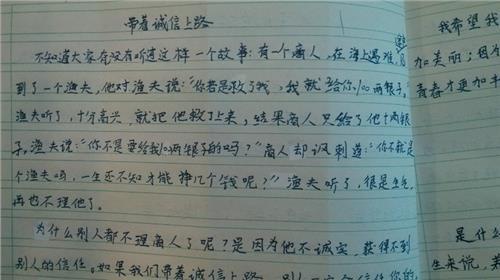 带着诚信上路
不知道大家有没有听过这样一个故事:有一个商人,在海上遇难,遇
到了一个渔夫,他对渔夫说:"你若是救了我,我就给你100两银子。"
渔夫听了,十分高兴,就把他救了上来,结果商人只给了他十两银
子。渔夫说:"你不是要给我100两银子的吗?"商人却讽刺道:"你不就是
个渔夫吗,一生还不知才能挣几个钱呢?"渔夫听了,很是生气,
再也不理他了。
为什么别人都不理商人了呢?是因为他不诚实,获得不到
别人的信任。如果我们带着诚信上路,别人一定会信任你的
我希望我
加美丽;因为
青春才更加
是什么
生来说,